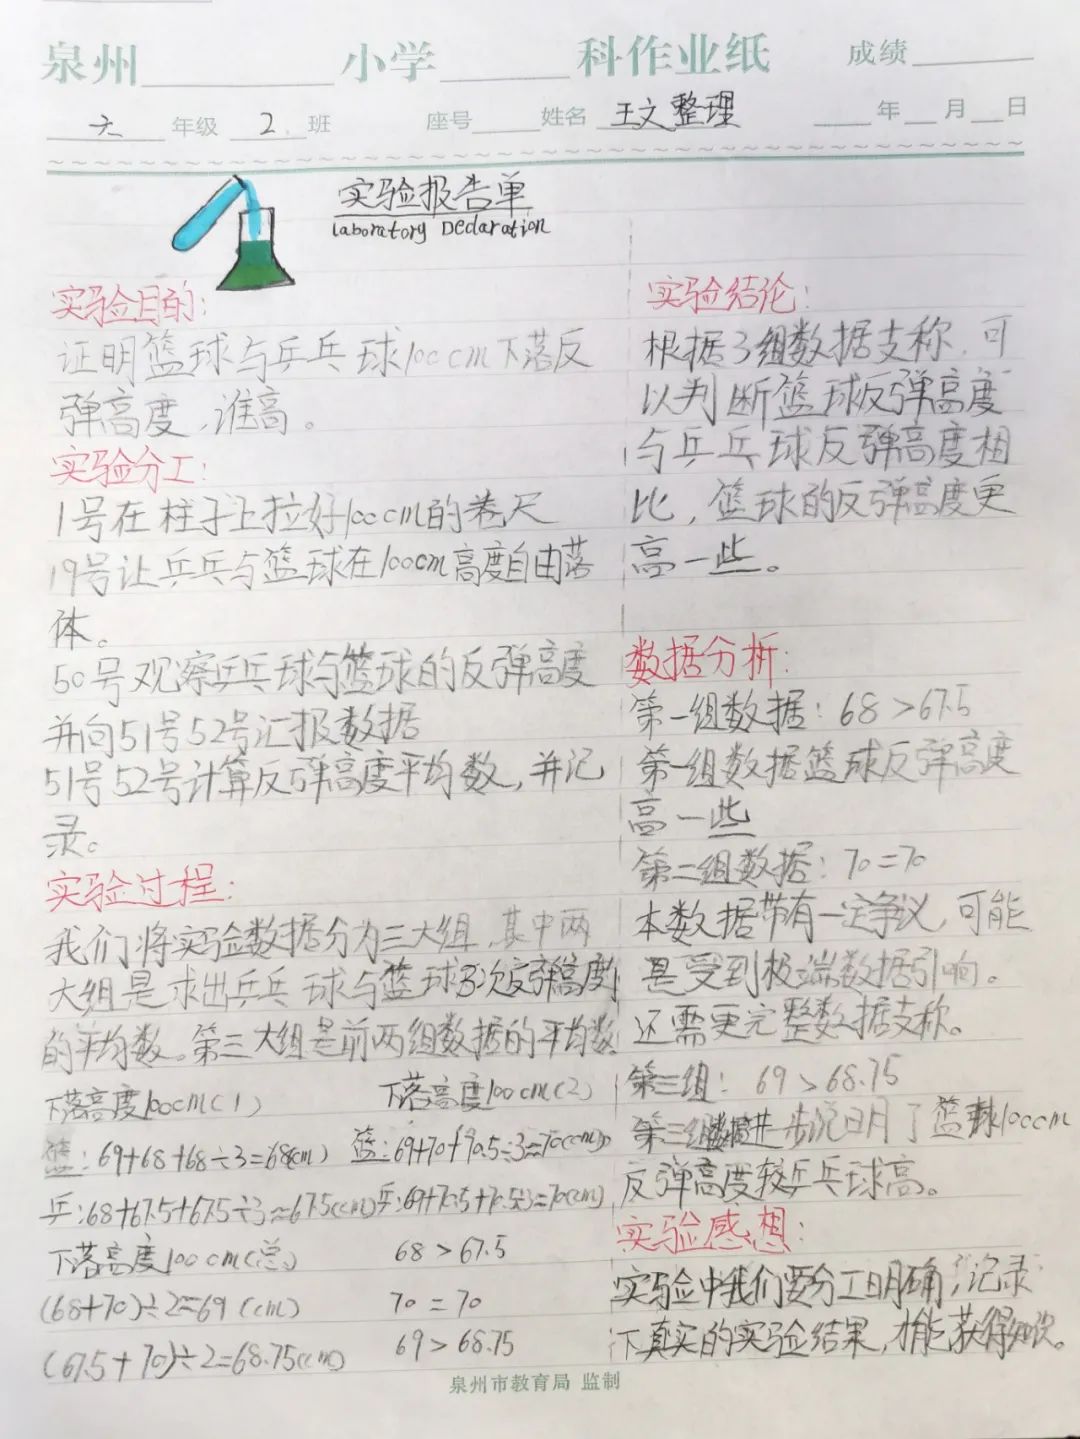 泉州 小学 科作业纸 成绩
六 年级 2 班 座号 姓名 王文整理 年 月 日
实验报告单
laboratory Declaration
实验目的:
证明篮球与乒乓球100cm下落反
弹高度,谁高。
实验分工:
1号在柱子上拉好100cm的卷尺
19号让乒乓与篮球在100cm高度自由落
体。
50号观察乒乓球与篮球的反弹高度
并向51号52号汇报数据
51号52号计算反弹高度平均数,并记
录。
实验过程:
我们将实验数据分为三大组,其中两
大组是求出乒乓球与篮球3次反弹高度
的平均数。第三大组是前两组数据的平均数
下落高度100cm(1) 下落高度100cm(2)
篮:69+68+68÷3=68(cm) 篮:69+70+70.5÷3≈70(cm)
乒:68+67.5+67.5÷3≈67.5(cm) 乒:69+70.5+70.5÷3=70(cm)
下落高度100cm(总) 68>67.5
(68+70)÷2=69(cm) 70=70
(67.5+70)÷2=68.75(cm) 69>68.75
实验结论:
根据3组数据支称,可
以判断篮球反弹高度
与乒乓球反弹高度相
比,篮球的反弹高度更
高一些。
数据分析:
第一组数据:68>67.5
第一组数据篮球反弹高度
高一些
第二组数据:70=70
本数据带有一定争议,可能
是受到极端数据引响。
还需更完整数据支称。
第三组:69>68.75
第三组数据进一步说明了篮球100cm
反弹高度较乒乓球高。
实验感想:
实验中我们要分工明确,记录
下真实的实验结果,才能获得知识。
泉州市教育局 监制